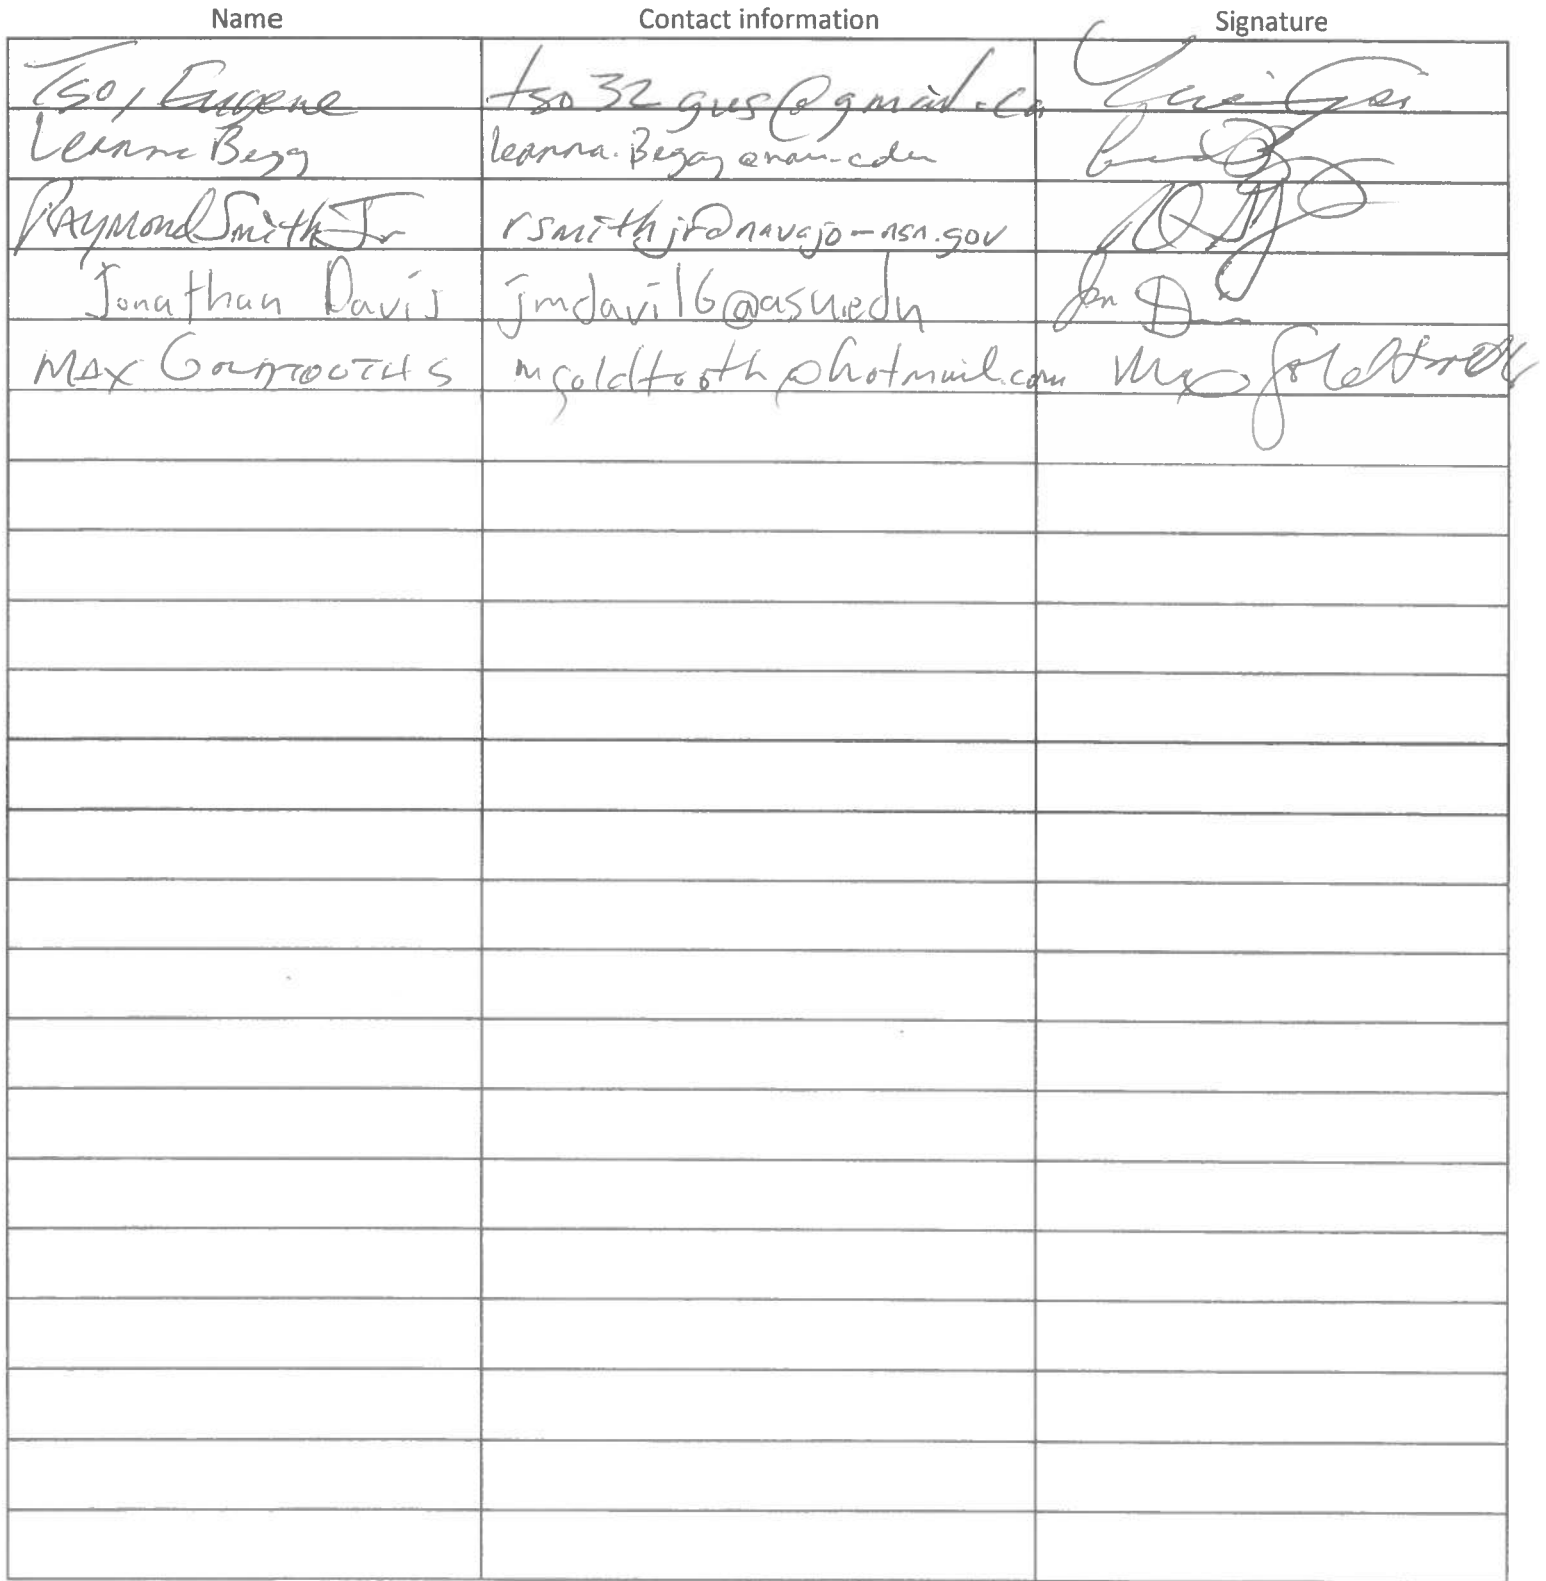 Name Contact information Signature
Tso, Eugene tso32gus@gmail.co
Leanna Begay leanna.Begay@nau.edu
Raymond Smith Jr rsmithjr@navajo-nsn.gov
Jonathan Davis jmdavi16@asu.edu Jon D
MAX GOLDTOOTH S mgoldtooth@hotmail.com Max Goldtooth